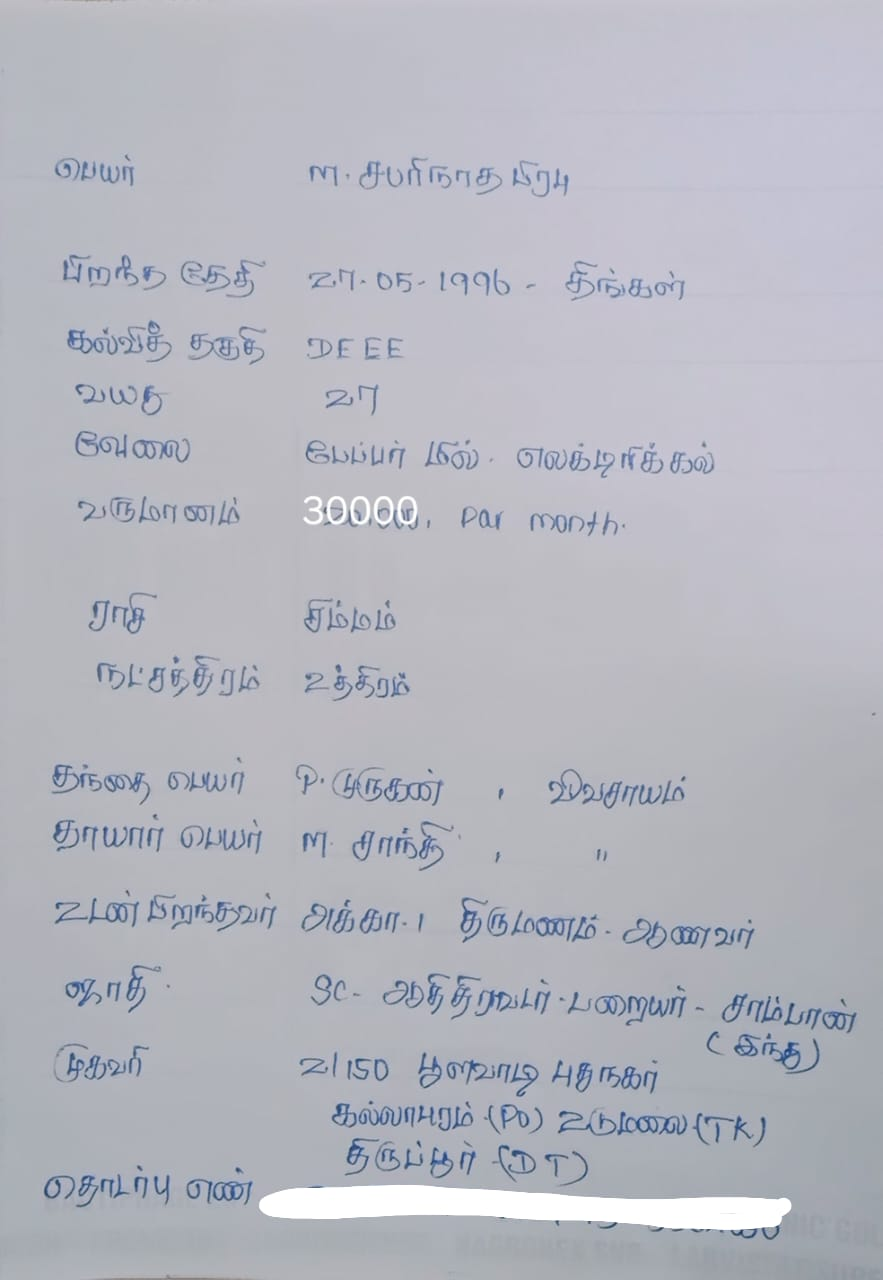 பெயர் M. சபரிநாத பிரபு
பிறந்த தேதி 27-05-1996 - திங்கள்
கல்வித் தகுதி DEEE
வயது 27
வேலை பேப்பர் மில். எலக்டிரிக்கல்
வருமானம் 30000, Par month.
ராசி சிம்மம்
நட்சத்திரம் உத்திரம்
தந்தை பெயர் P. முருகன் , விவசாயம்
தாயார் பெயர் M. சாந்தி , "
உடன் பிறந்தவர் அக்கா-1 திருமணம்-ஆனவர்
ஜாதி SC- ஆதிதிரவடர்-பறையர் - சாம்பான்
(இந்து)
முகவரி 2/150 பூளவாடி புதுநகர்
கல்லாபுரம்-(PO) உடுமலை-(TK)
திருப்பூர்-(DT)
தொடர்பு எண்